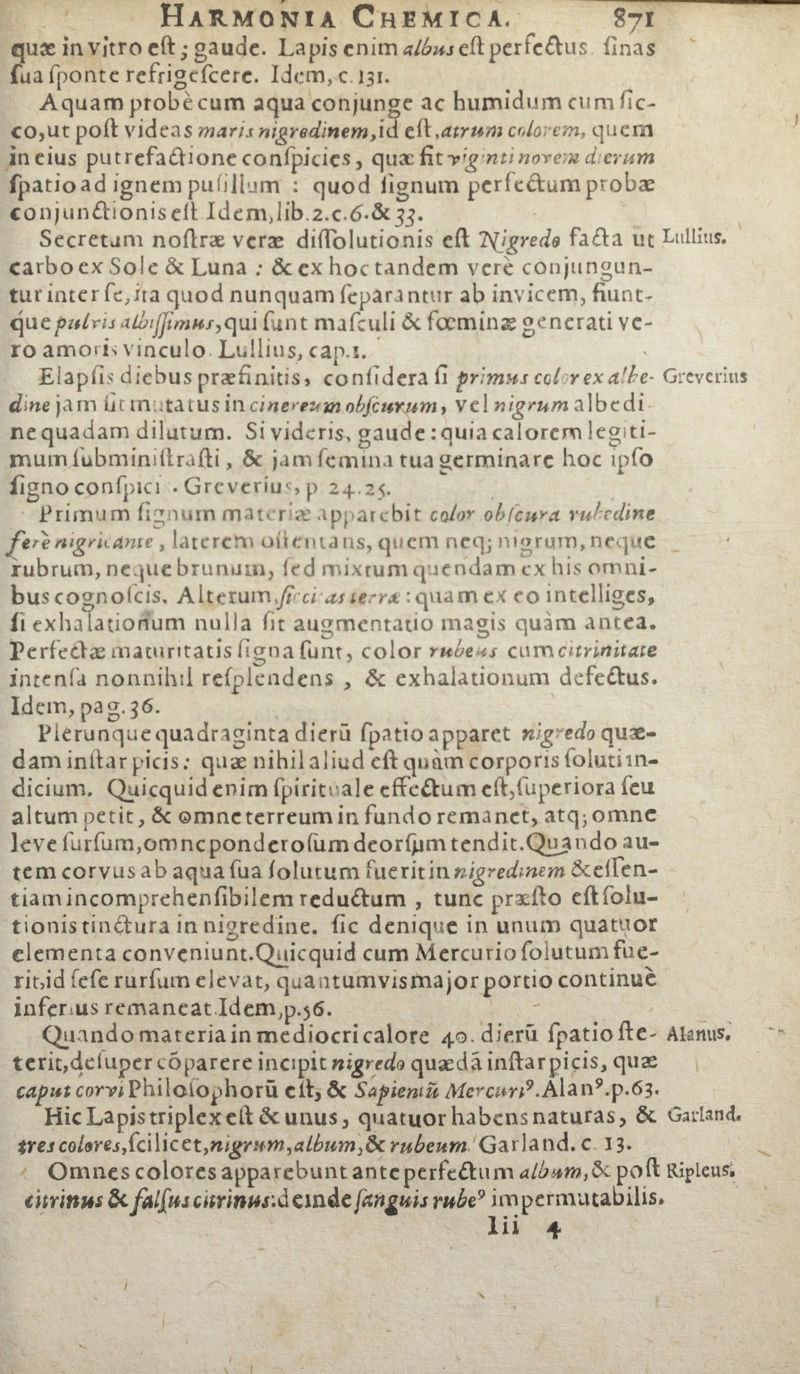 HARMONIA CHEMICA. 871
quæ in vitro eſt; gaude. Lapis enim albus eſt perfectus. ſinas
ſua ſponte refrigeſcere. Idem, c. 131.
Aquam probè cum aqua conjunge ac humidum cum ſic-
co, ut poſt videas maris nigredinem, id eſt, atrum colorem, quem
in eius putrefactione conſpicies, quæ fit viginti novem dierum
ſpatio ad ignem puſillum : quod ſignum perfectum probæ
conjunctionis eſt Idem, lib. 2. c. 6. & 33.
Secretum noſtræ veræ diſſolutionis eſt Nigredo facta ut Lullius.
carbo ex Sole & Luna : & ex hoc tandem verè conjungun-
tur inter ſe, ita quod nunquam ſeparantur ab invicem, fiunt-
que pulvis albiſſimus, qui ſunt maſculi & fœminæ generati ve-
ro amoris vinculo. Lullius, cap. 1.
Elapſis diebus præfinitis, conſidera ſi primus color ex albe- Greverius
dine jam ſit mutatus in cinereum obſcurum, vel nigrum albedi-
ne quadam dilutum. Si videris, gaude: quia calorem legiti-
mum ſubminiſtraſti, & jam ſemina tua germinare hoc ipſo
ſigno conſpici. Greverius, p 24. 25.
Primum ſignum materiæ apparebit color obſcura rubedine
ferè nigricante, laterem oſtentans, quem neq; nigrum, neque
rubrum, neque brunum, ſed mixtum quendam ex his omni-
bus cognoſcis. Alterum, ſiccitas terræ: quam ex eo intelliges,
ſi exhalationum nulla ſit augmentatio magis quàm antea.
Perfectæ maturitatis ſigna ſunt, color rubeus cum citrinitate
intenſa nonnihil reſplendens, & exhalationum defectus.
Idem, pag. 36.
Plerunque quadraginta dierū ſpatio apparet nigredo quæ-
dam inſtar picis: quæ nihil aliud eſt quàm corporis ſoluti in-
dicium. Quicquid enim ſpirituale effectum eſt, ſuperiora ſeu
altum petit, & omne terreum in fundo remanet, atq; omne
leve ſurſum, omne ponderoſum deorſum tendit. Quando au-
tem corvus ab aqua ſua ſolutum fuerit in nigredinem & eſſen-
tiam incomprehenſibilem reductum, tunc præſto eſt ſolu-
tionis tinctura in nigredine. ſic denique in unum quatuor
elementa conveniunt. Quicquid cum Mercurio ſolutum fue-
rit, id ſeſe rurſum elevat, quantumvis major portio continuè
inferius remaneat. Idem, p. 56.
Quando materia in mediocri calore 40. dierū ſpatio ſte- Alanus.
terit, deſuper cōparere incipit nigredo quædā inſtar picis, quæ
caput corvi Philoſophorū eſt, & Sapientū Mercuri⁹. Alan⁹. p. 63.
Hic Lapis triplex eſt & unus, quatuor habens naturas, & Garland.
tres colores, ſcilicet, nigrum, album, & rubeum. Garland. c. 13.
Omnes colores apparebunt ante perfectum album, & poſt Ripleus.
citrinus & falſus citrinus: deinde ſanguis rube⁹ impermutabilis.
Iii 4